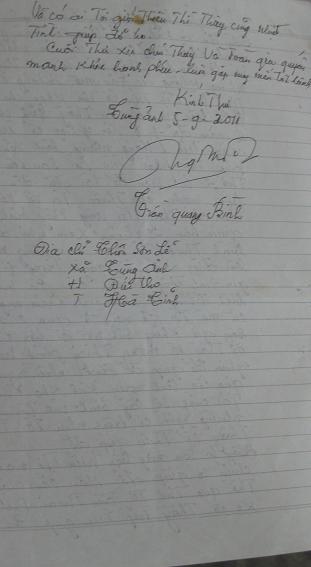 Và có ai Tôi giới Thiệu Thì Thầy cũng nhiệt
Tình giúp đỡ họ.
Cuối Thư xin chúc Thầy Và Toàn gia quyến
mạnh khỏe hạnh phúc - luôn gặp may mắn Tốt lành
Kính Thư
Tùng ảnh 5-9-2011
Trần quang Bình
Địa chỉ Thôn Sơn Lễ
xã Tùng ảnh
H Đức thọ
T Hà Tĩnh